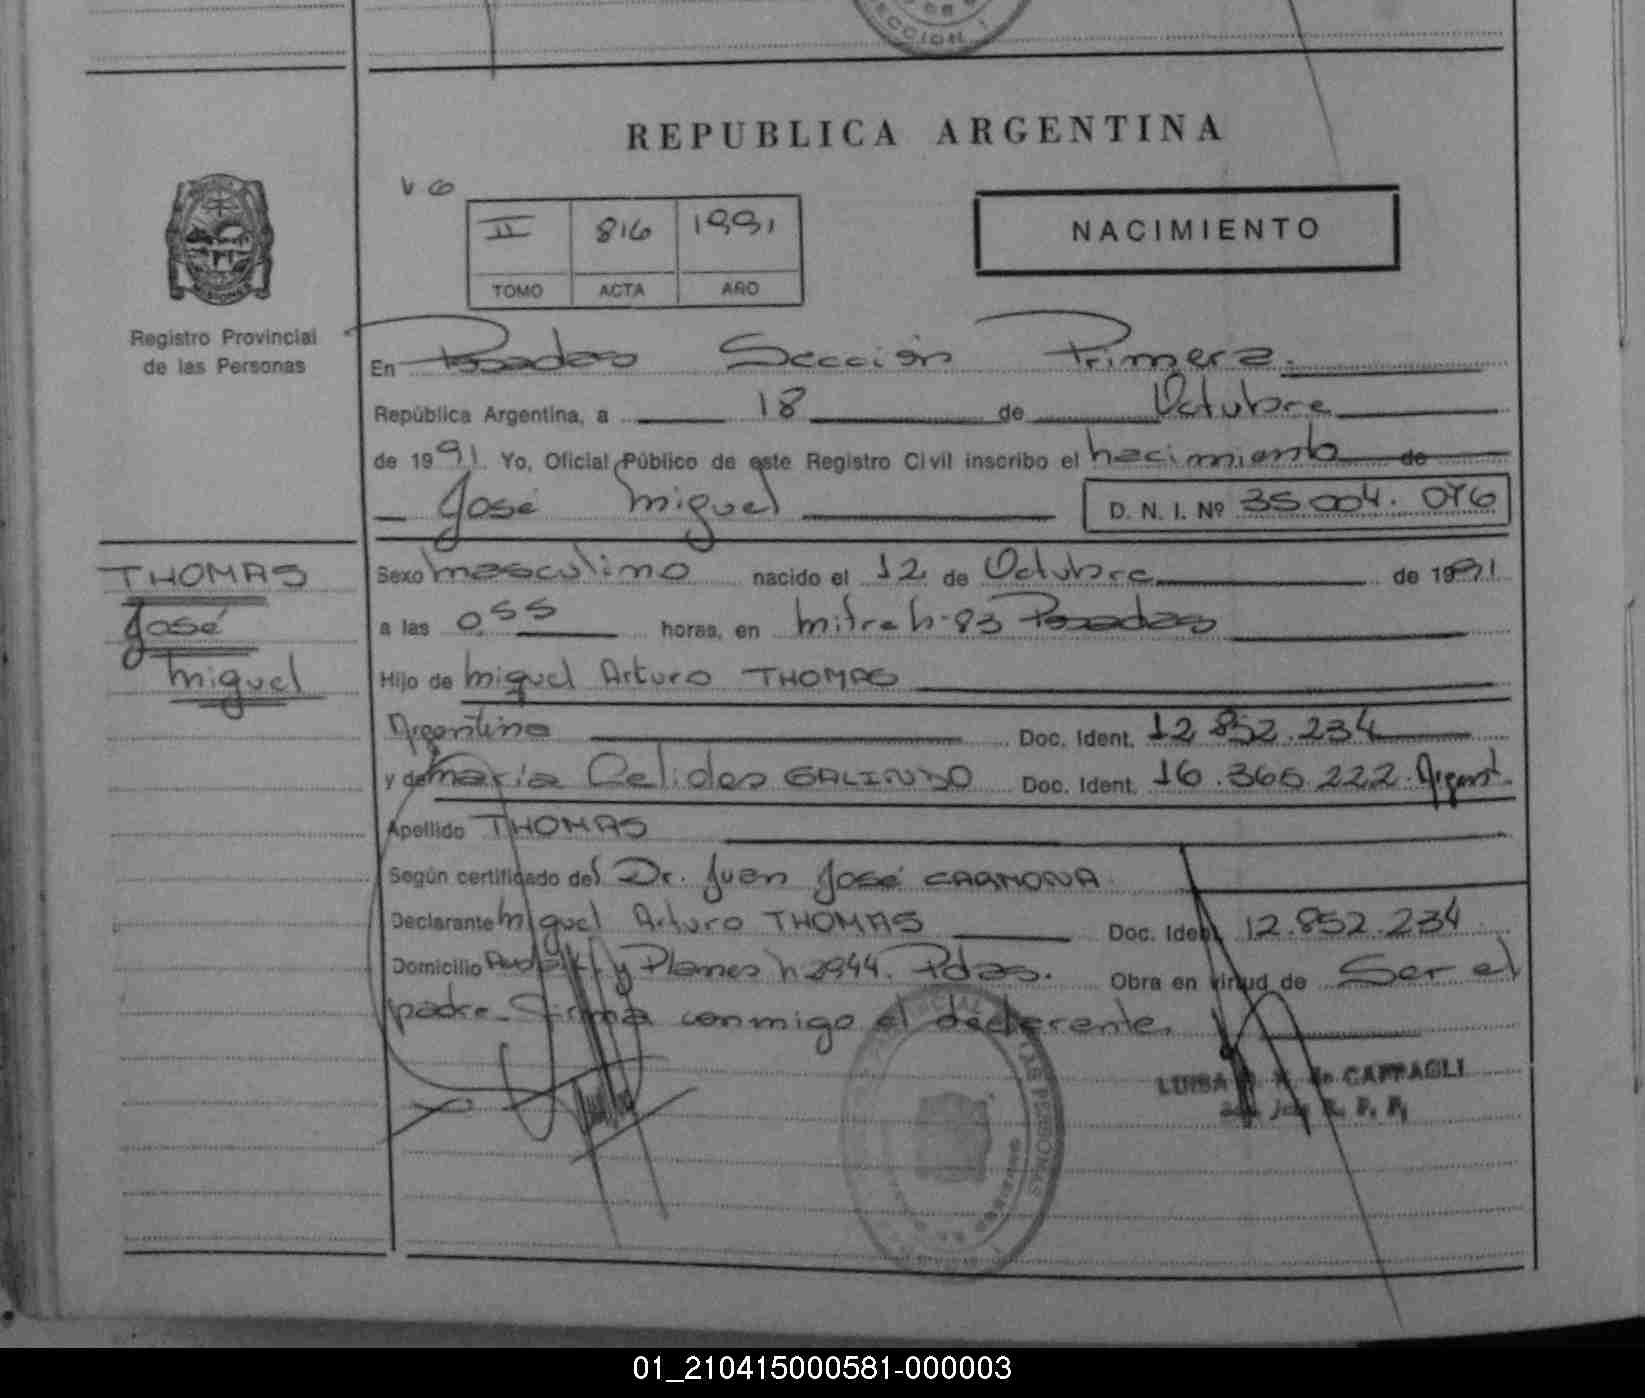 SECCION 1
REPUBLICA ARGENTINA
V 6
II 816 1991
TOMO ACTA AÑO
NACIMIENTO
Registro Provincial
de las Personas
En Posadas Sección Primera.
República Argentina, a 18 de Octubre
de 1991 Yo, Oficial Público de este Registro Civil inscribo el nacimiento de
José Miguel D. N. I. Nº 35.004.076
THOMAS
José
Miguel
Sexo Masculino nacido el 12 de Octubre de 1991
a las 0,55 horas, en Mitre h-83 Posadas
Hijo de Miguel Arturo THOMAS
Argentino Doc. Ident. 12.852.234
y de Maria Celides GALINDO Doc. Ident. 16.366.222. Argent.
Apellido THOMAS
Según certificado del Dr. Juan José CARMONA
Declarante Miguel Arturo THOMAS Doc. Ident. 12.852.234
Domicilio y Planes n 2944. Pdas. Obra en virtud de Ser el
padre. Firma conmigo el declarante.
LUISA de CAFFAGLI
R. P. P.
01_210415000581-000003